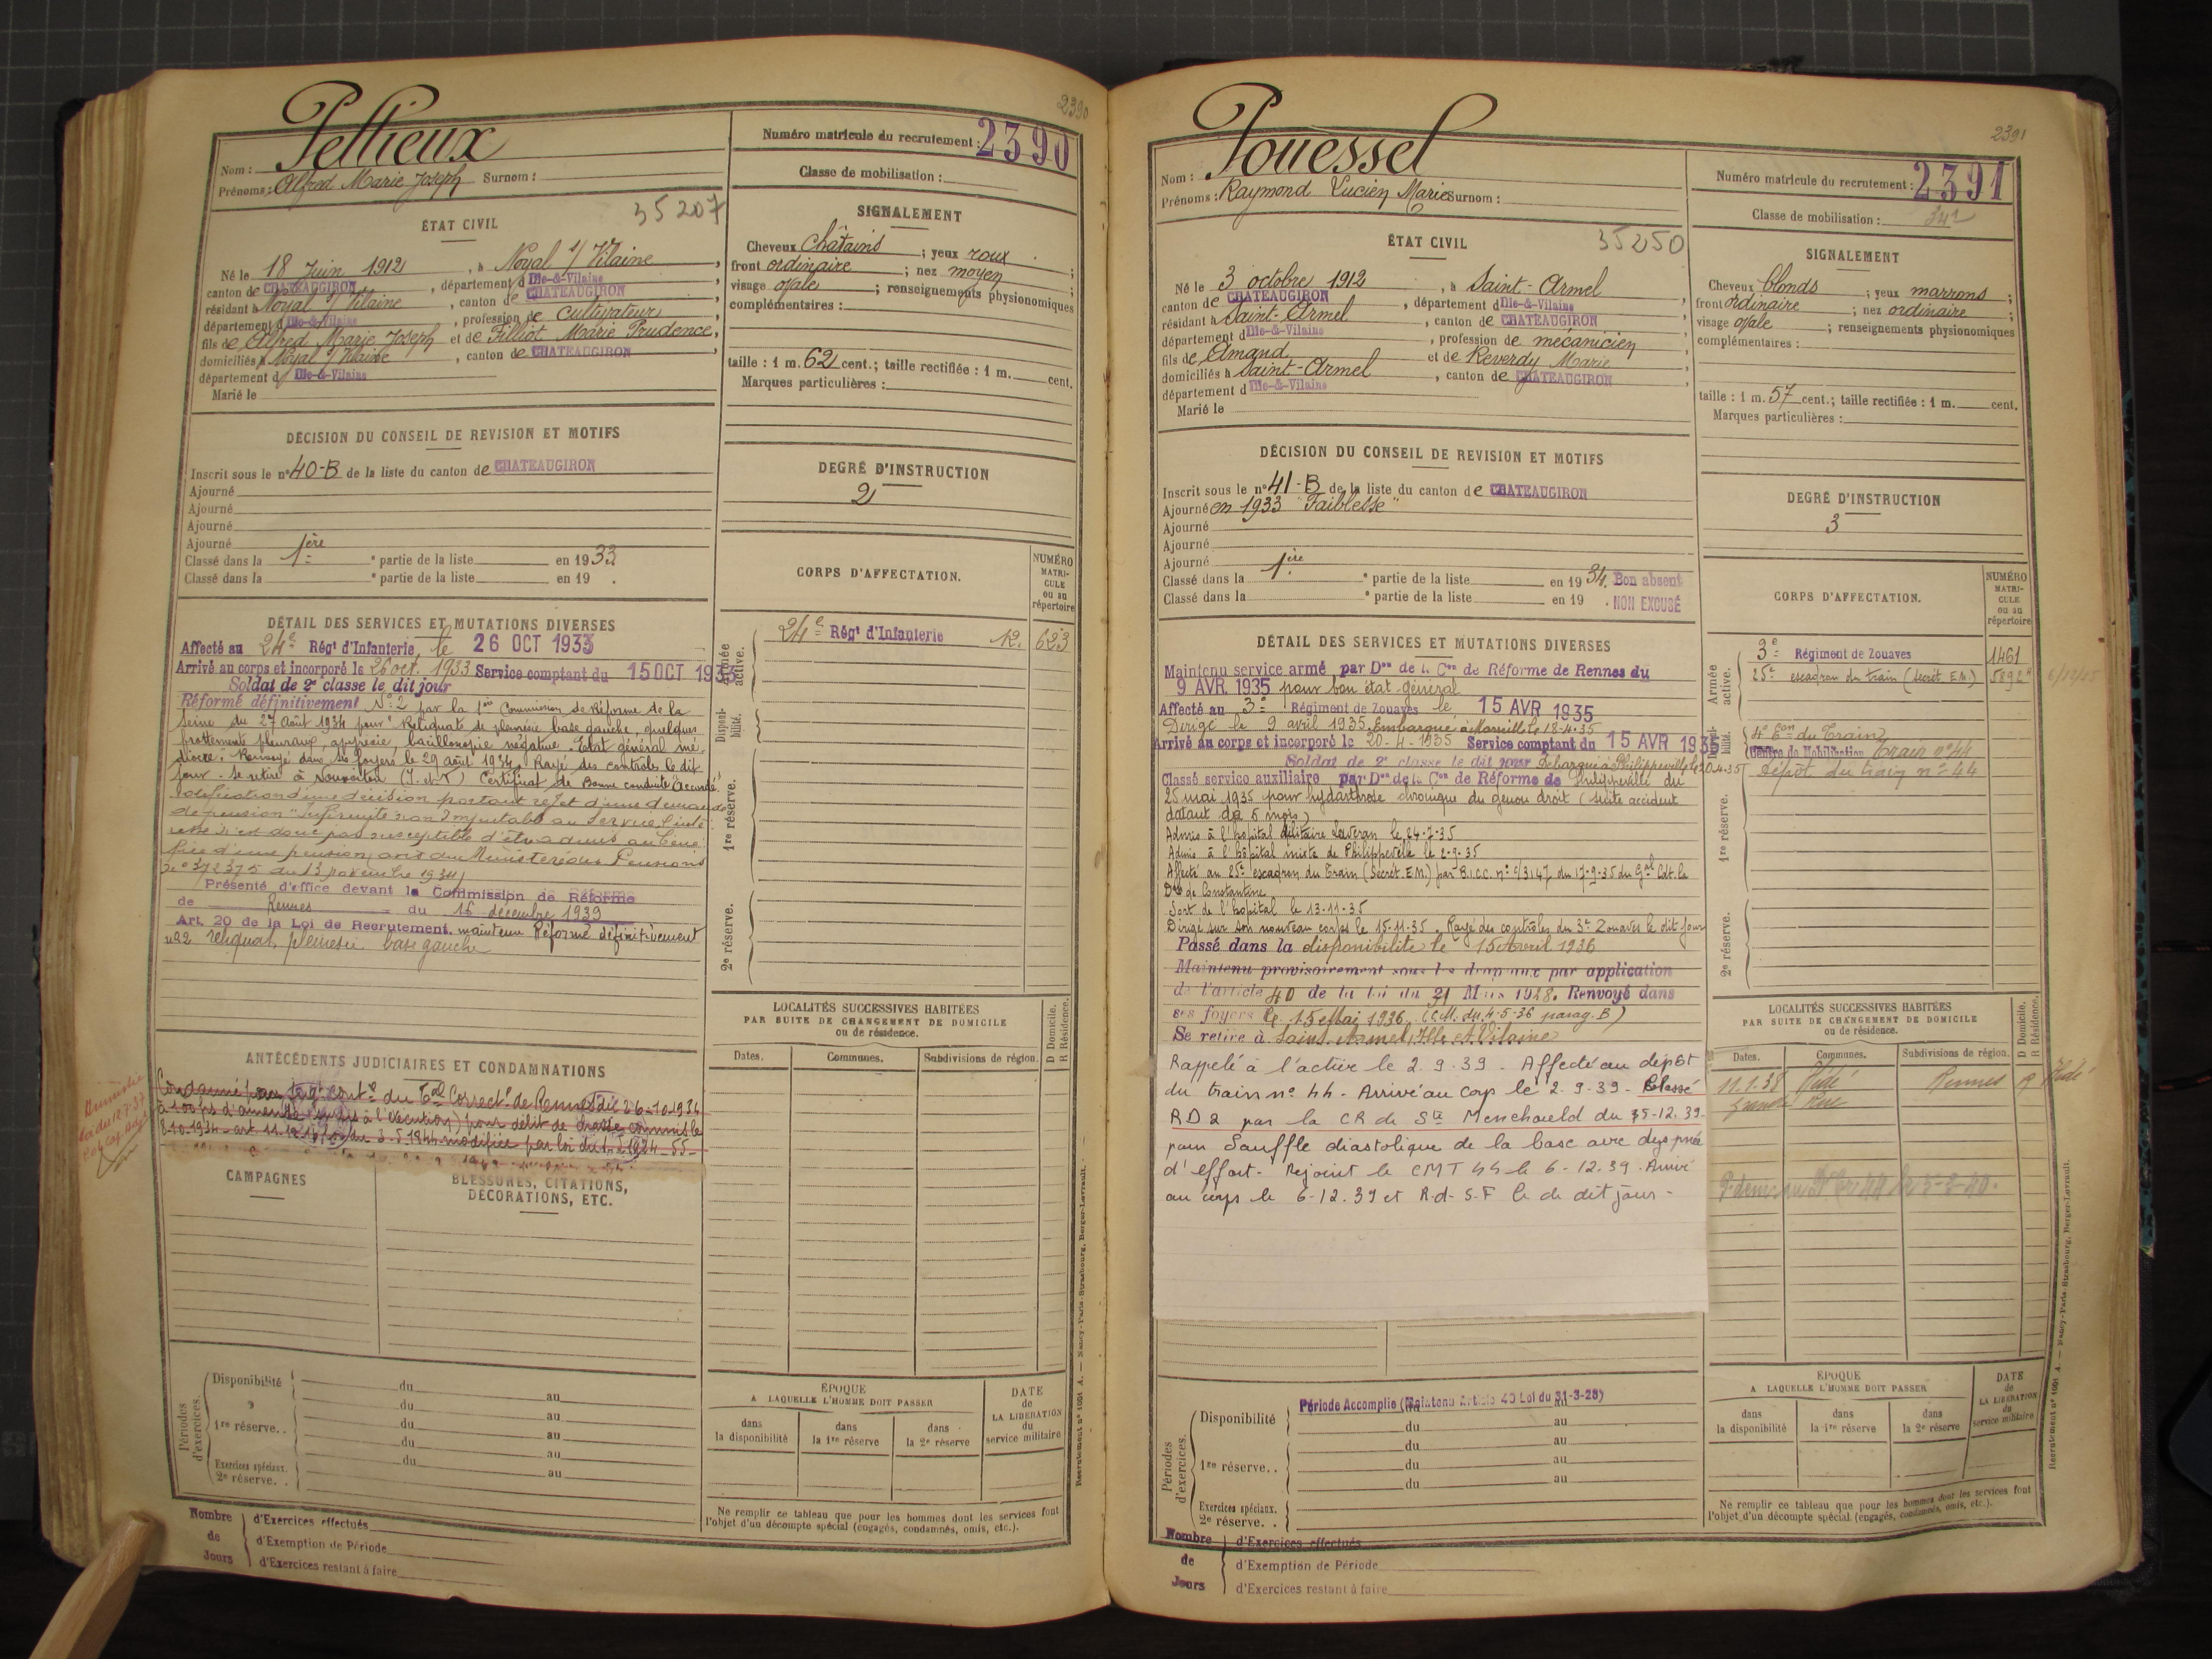 2390
Pellieux
Nom :
Prénoms : Alfred Marie Joseph Surnom :
35207
ÉTAT CIVIL
Né le 18 Juin 1912, à Noyal s/ Vilaine,
canton de CHATEAUGIRON, département d Ille-&-Vilaine
résidant à Noyal s/ Vilaine, canton de CHATEAUGIRON,
département d Ille-&-Vilaine, profession de cultivateur,
fils de Alfred Marie Joseph et de Filliot Marie Prudence,
domiciliés à Noyal s/ Vilaine, canton de CHATEAUGIRON,
département d Ille-&-Vilaine
Marié le
DÉCISION DU CONSEIL DE REVISION ET MOTIFS
Inscrit sous le n° 40-B de la liste du canton de CHATEAUGIRON
Ajourné
Ajourné
Ajourné
Ajourné
Classé dans la 1ère ° partie de la liste en 1933
Classé dans la ° partie de la liste en 19 .
DÉTAIL DES SERVICES ET MUTATIONS DIVERSES
Affecté au 24e Régt d'Infanterie, le 26 OCT 1933
Arrivé au corps et incorporé le 26 oct. 1933 Service comptant du 15 OCT 1933
Soldat de 2e classe le dit jour
Réformé définitivement N° 2 par la 1ère Commission de Réforme de la
Seine du 27 Août 1934 pour " Reliquats de pleurésie base gauche, quelques
frottements pleuraux, apyrexie, bacilloscopie négative. Etat général mé-
diocre. Renvoyé dans ses foyers le 29 août 1934. Rayé des controles le dit
jour. Se retire à (I.-et-V) Certificat de Bonne conduite "Accordé"
notification d'une décision portant rejet d'une demande
de pension "Infirmité non Imputable au Service l'inté-
ressé n'est donc pas susceptible d'être admis au béné-
fice d'une pension avis du Ministère des Pensions
N° 372375 du 13 novembre 1934)
Présenté d'office devant la Commission de Réforme
de Rennes du 16 décembre 1939
Art. 20 de la Loi de Recrutement. maintenu Réformé définitivement
n°2 reliquat pleurésie base gauche
ANTÉCÉDENTS JUDICIAIRES ET CONDAMNATIONS
Condamné par jugt cont're du Tal Correctl de Rennes du 26-10-1934
à 100 frs d'amende à l'exécution) pour délit de chasse commis le
8-10-1934 art. 11.12.16 loi du 3-5-1844 modifiée par loi du 1-5-1924 - 55 -
CAMPAGNES
BLESSURES, CITATIONS,
DÉCORATIONS, ETC.
Périodes d'exercices.
Disponibilité du au
du au
1re réserve. . du au
du au
Exercices spéciaux.
2e réserve. . du au
Nombre de Jours
d'Exercices effectués
d'Exemption de Période
d'Exercices restant à faire
Numéro matricule du recrutement : 2390
Classe de mobilisation :
SIGNALEMENT
Cheveux Châtains ; yeux roux ;
front ordinaire ; nez moyen ;
visage ovale ; renseignements physionomiques
complémentaires :
taille : 1 m. 62 cent.; taille rectifiée : 1 m. cent.
Marques particulières :
DEGRÉ D'INSTRUCTION
2
CORPS D'AFFECTATION.
NUMÉRO MATRI-CULE ou au répertoire
Armée active.
24e Régt d'Infanterie 12. 623
Disponi-bilité.
1re réserve.
2e réserve.
LOCALITÉS SUCCESSIVES HABITÉES
PAR SUITE DE CHANGEMENT DE DOMICILE
ou de résidence.
D Domicile.
R Résidence.
Dates. Communes. Subdivisions de région.
ÉPOQUE
A LAQUELLE L'HOMME DOIT PASSER
dans la disponibilité
dans la 1re réserve
dans la 2e réserve
DATE de LA LIBÉRATION du service militaire
Ne remplir ce tableau que pour les hommes dont les services font
l'objet d'un décompte spécial (engagés, condamnés, omis, etc.).
Recrutement n° 1001 A. — Nancy-Paris-Strasbourg, Berger-Levrault.
2391
Pouëssel
Nom :
Prénoms : Raymond Lucien Marie Surnom :
35250
ÉTAT CIVIL
Né le 3 octobre 1912, à Saint-Armel
canton de CHATEAUGIRON, département d Ille-&-Vilaine
résidant à Saint-Armel, canton de CHATEAUGIRON,
département d Ille-&-Vilaine, profession de mécanicien,
fils de Amand et de Reverdy Marie,
domiciliés à Saint-Armel, canton de CHATEAUGIRON,
département d Ille-&-Vilaine
Marié le
DÉCISION DU CONSEIL DE REVISION ET MOTIFS
Inscrit sous le n° 41-B de la liste du canton de CHATEAUGIRON
Ajourné en 1933 "Faiblesse"
Ajourné
Ajourné
Ajourné
Classé dans la 1ère ° partie de la liste en 1934. Bon absent
Classé dans la ° partie de la liste en 19 . NON EXCUSÉ
DÉTAIL DES SERVICES ET MUTATIONS DIVERSES
Maintenu service armé par Don de la Con de Réforme de Rennes du
9 AVR 1935 pour bon état général
Affecté au 3e Régiment de Zouaves le 15 AVR 1935
Dirigé le 9 avril 1935. Embarqué à Marseille le 18-4-35
Arrivé au corps et incorporé le 20-4-1935 Service comptant du 15 AVR 1935
Soldat de 2e classe le dit jour Débarqué à Philippeville le 20.4.35
Classé service auxiliaire par Don de la Con de Réforme de Philippeville du
25 mai 1935 pour hydarthrose chronique du genou droit (suite accident
datant de 6 mois)
Admis à l'hôpital militaire Laveran le 24-7-35
Admis à l'hôpital mixte de Philippeville le 2-9-35
Affecté au 25e escadron du Train (Secrét. E.M.) par B.I.C.C. n° c/3147 du 17-9-35 du Gal Cdt. la
Don de Constantine
Sort de l'hôpital le 13-11-35
Dirigé sur son nouveau corps le 15-11-35. Rayé des contrôles du 3e Zouaves le dit jour
Passé dans la disponibilité le 15 Avril 1936
Maintenu provisoirement sous les drapeaux par application
de l'article 40 de la loi du 31 Mars 1928. Renvoyé dans
ses foyers le 15 Mai 1936. (C.M. du 4-5-36 parag. B)
Se retire à Saint Armel, Ille et Vilaine
Rappelé à l'active le 2.9.39. Affecté au dépôt
du train n° 44. Arrivé au corps le 2-9-39 - Classé
RD2 par la CR de Ste Menehould du 5-12.39-
pour Souffle diastolique de la base avec dyspnée
d'effort. Rejoint le CMT 44 le 6-12.39. Arrivé
au corps le 6-12.39 et R.d.S.F le dit jour -
Périodes d'exercices.
Période Accomplie (Maintenu Article 40 Loi du 31-3-28)
Disponibilité du au
du au
du au
1re réserve. . du au
du au
Exercices spéciaux.
2e réserve. .
Nombre de Jours
d'Exercices effectués
d'Exemption de Période
d'Exercices restant à faire
Numéro matricule du recrutement : 2391
Classe de mobilisation :
SIGNALEMENT
Cheveux blonds ; yeux marrons ;
front ordinaire ; nez ordinaire ;
visage ovale ; renseignements physionomiques
complémentaires :
taille : 1 m. 57 cent.; taille rectifiée : 1 m. cent.
Marques particulières :
DEGRÉ D'INSTRUCTION
3
CORPS D'AFFECTATION.
NUMÉRO MATRI-CULE ou au répertoire
Armée active.
3e Régiment de Zouaves 1461
25e escadron du train (Secrét. E.M.) 5892
Disponi-bilité.
4e Eon du Train
Centre de Mobilisation Train n° 44
Dépôt du train n° 44
1re réserve.
2e réserve.
LOCALITÉS SUCCESSIVES HABITÉES
PAR SUITE DE CHANGEMENT DE DOMICILE
ou de résidence.
D Domicile.
R Résidence.
Dates. Communes. Subdivisions de région.
11.1.38 Hédé Rennes R Hédé
Grande Rue
ÉPOQUE
A LAQUELLE L'HOMME DOIT PASSER
dans la disponibilité
dans la 1re réserve
dans la 2e réserve
DATE de LA LIBÉRATION du service militaire
Ne remplir ce tableau que pour les hommes dont les services font
l'objet d'un décompte spécial (engagés, condamnés, omis, etc.).
Recrutement n° 1001 A. — Nancy-Paris-Strasbourg, Berger-Levrault.